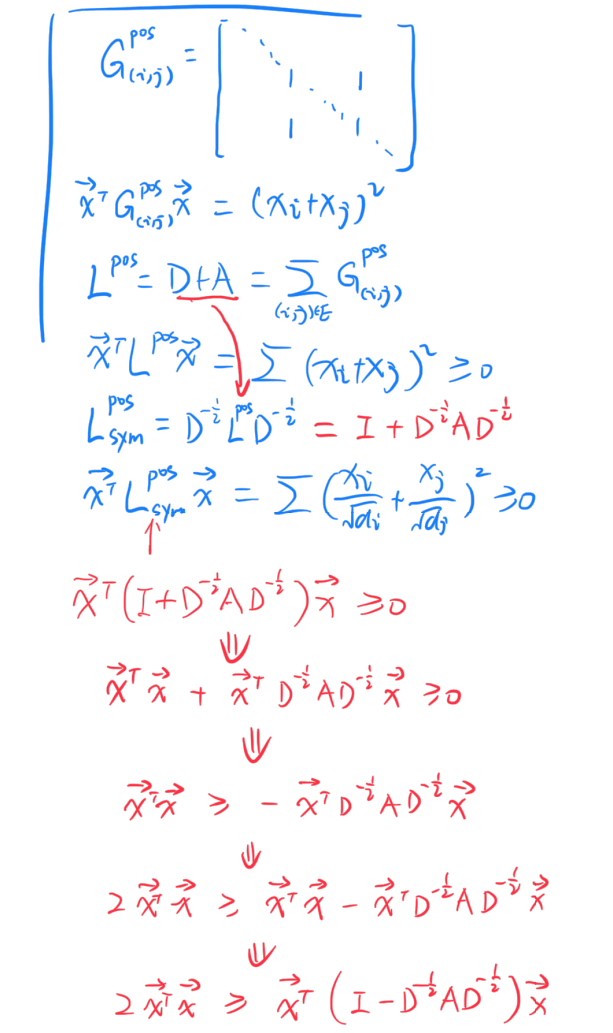 G_{(i,j)}^{pos} = [ 1 1 1 1 ]
\vec{x}^T G_{(i,j)}^{pos} \vec{x} = (x_i+x_j)^2
L^{pos} = D+A = \sum_{(i,j)∈E} G_{(i,j)}^{pos}
\vec{x}^T L^{pos} \vec{x} = \sum (x_i+x_j)^2 ≥ 0
L_{sym}^{pos} = D^{-\frac{1}{2}} L^{pos} D^{-\frac{1}{2}} = I + D^{-\frac{1}{2}} A D^{-\frac{1}{2}}
\vec{x}^T L_{sym}^{pos} \vec{x} = \sum (\frac{x_i}{\sqrt{d_i}} + \frac{x_j}{\sqrt{d_j}})^2 ≥ 0
↑
\vec{x}^T (I + D^{-\frac{1}{2}} A D^{-\frac{1}{2}}) \vec{x} ≥ 0
⇓
\vec{x}^T \vec{x} + \vec{x}^T D^{-\frac{1}{2}} A D^{-\frac{1}{2}} \vec{x} ≥ 0
⇓
\vec{x}^T \vec{x} ≥ - \vec{x}^T D^{-\frac{1}{2}} A D^{-\frac{1}{2}} \vec{x}
⇓
2 \vec{x}^T \vec{x} ≥ \vec{x}^T \vec{x} - \vec{x}^T D^{-\frac{1}{2}} A D^{-\frac{1}{2}} \vec{x}
⇓
2 \vec{x}^T \vec{x} ≥ \vec{x}^T (I - D^{-\frac{1}{2}} A D^{-\frac{1}{2}}) \vec{x}